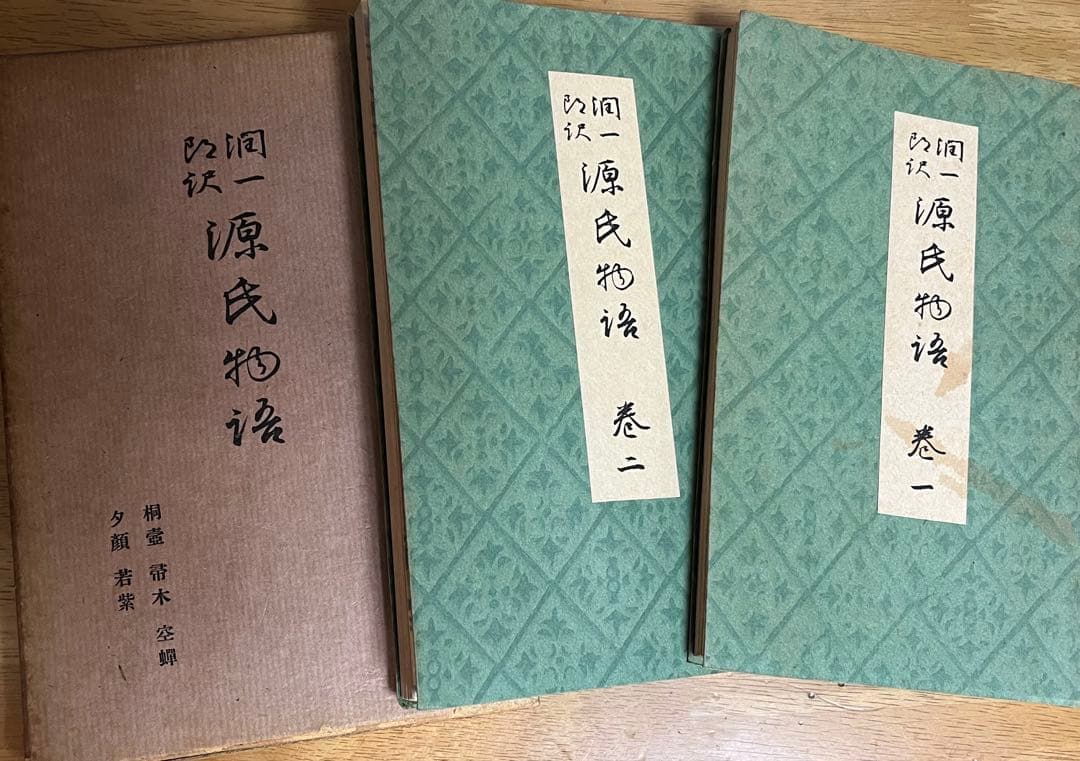 潤一
郎訳
源氏物語 巻一
潤一
郎訳
源氏物語 巻二
潤一
郎訳
源氏物語
桐壺 帚木 空蟬
夕顔 若紫